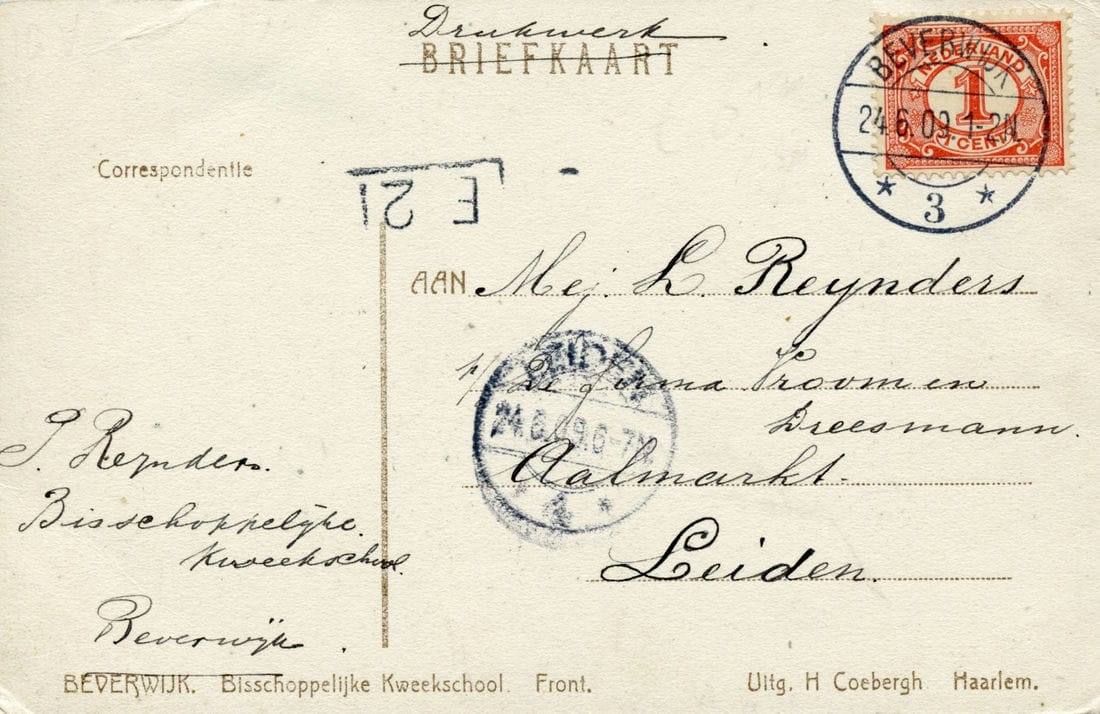 Drukwerk
BRIEFKAART
BEVERWIJK
24.6.09 1-2N
3
NEDERLAND
1
CENT
Correspondentie
E 21
AAN Mej. L. Reynders
p/ De firma Vroom en
Dreesmann.
Aalmarkt.
Leiden.
LEIDEN
24.6.09.6-7N
4
S. Reynders.
Bisschoppelijke
Kweekschool.
Beverwijk.
BEVERWIJK. Bisschoppelijke Kweekschool. Front.
Uitg. H Coebergh Haarlem.